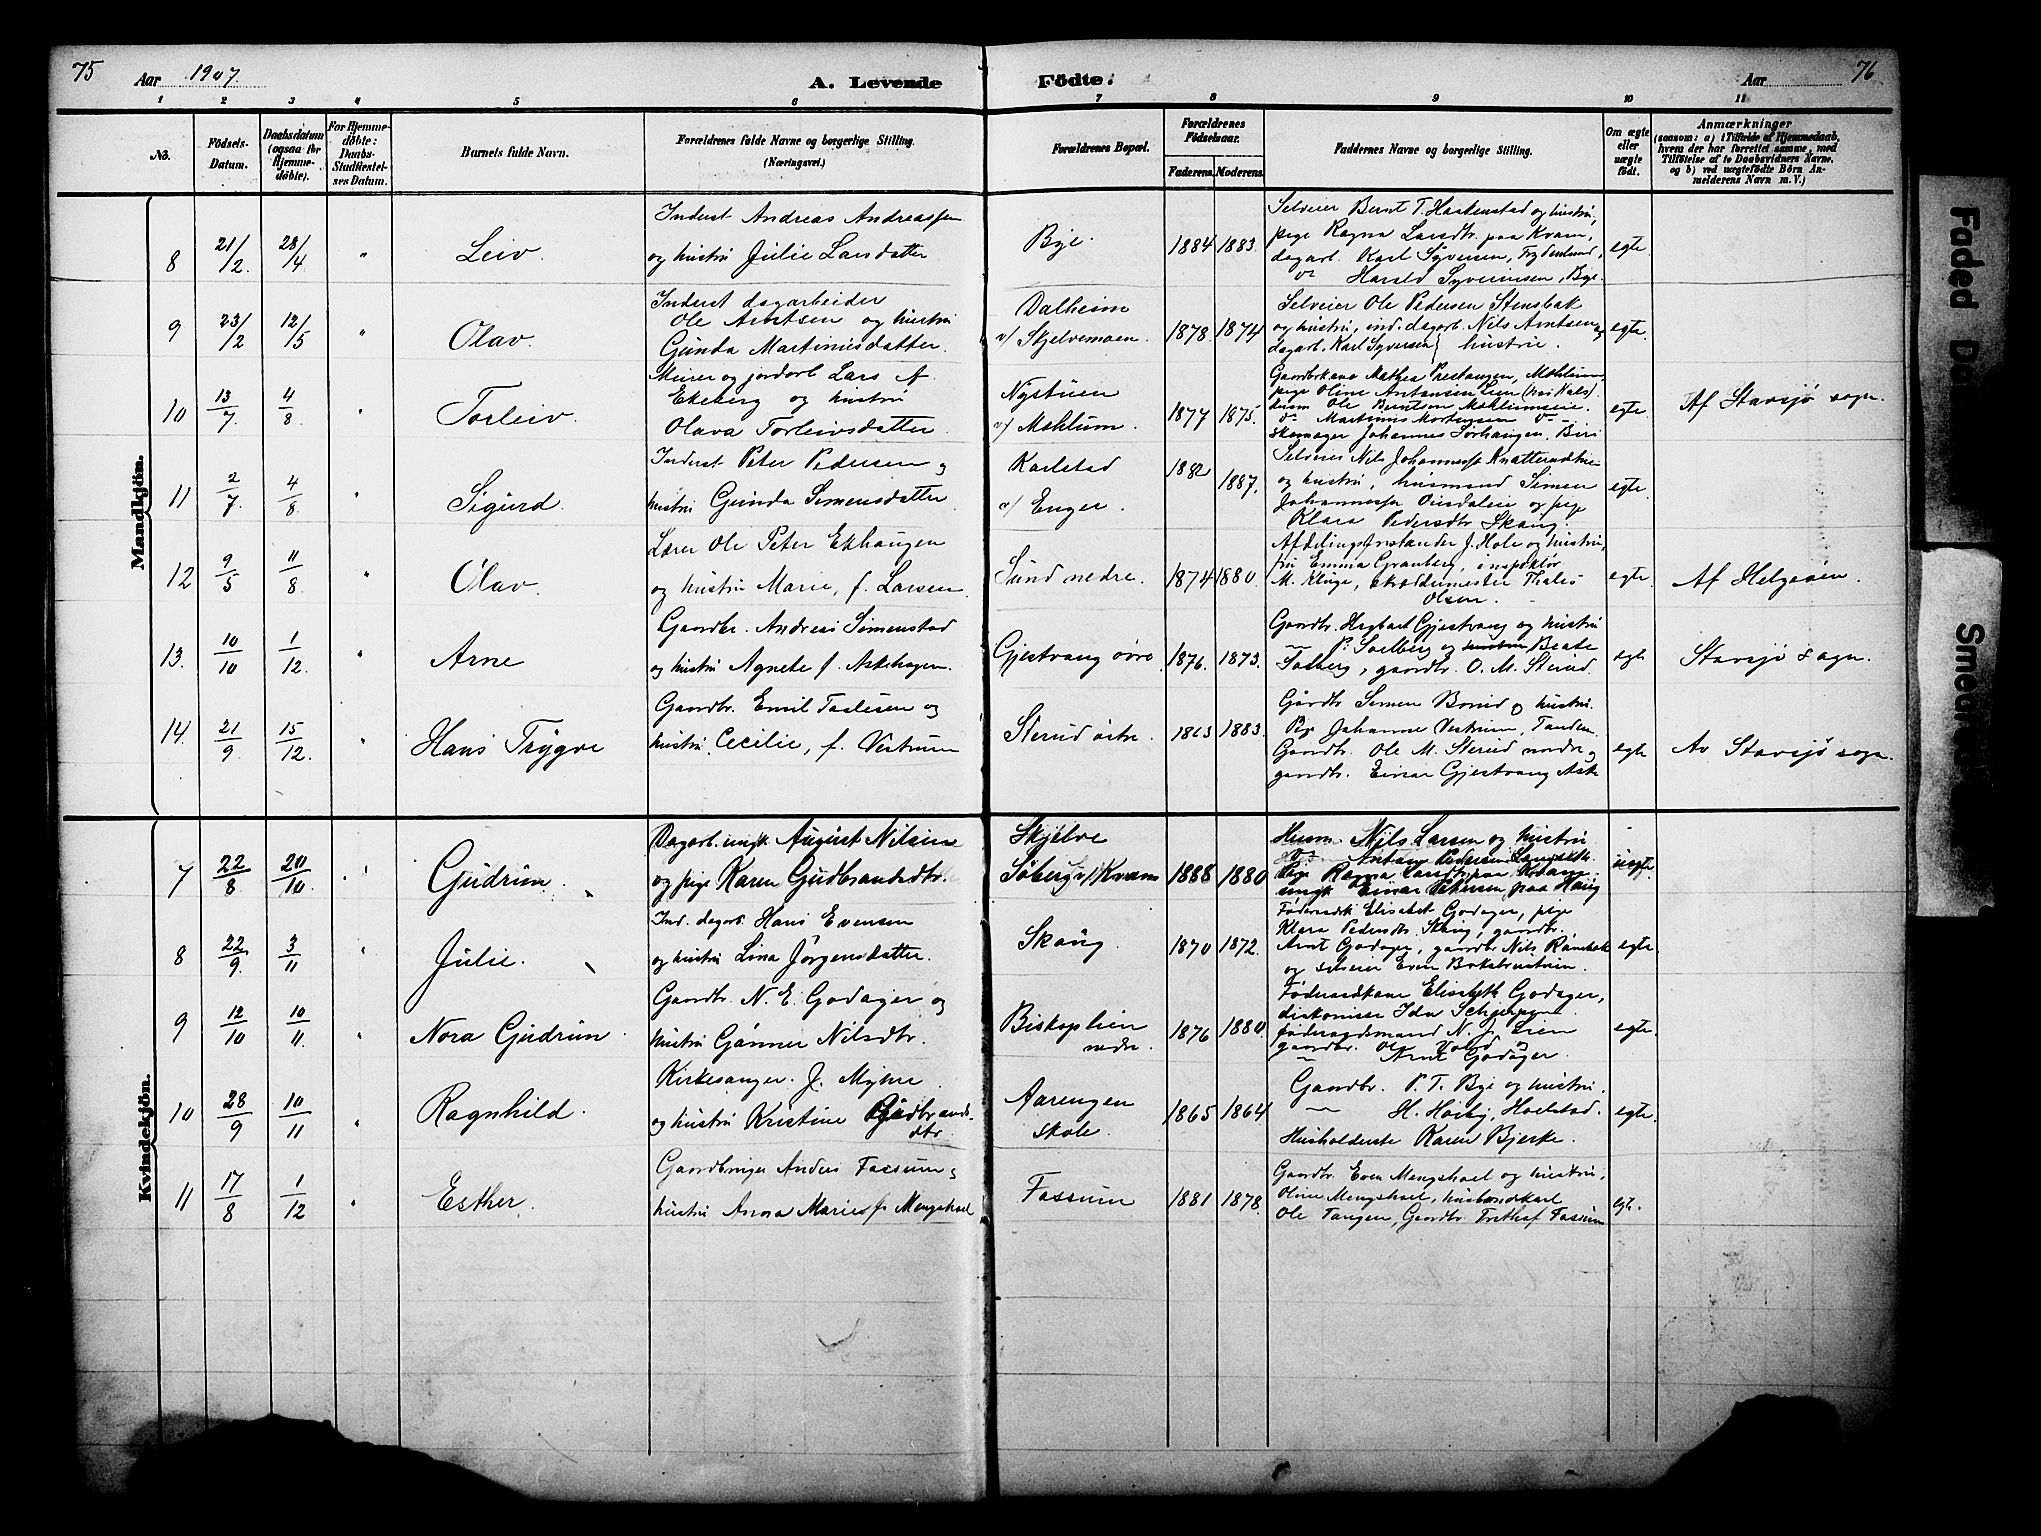 75 Aar 1907. A. Levende Födte. Aar 76
1 2 3 4 5 6 7 8 9 10 11
No. Födsels-Datum. Daabsdatum (ogsaa for Hjemme-döbte). For Hjemme-döbte: Daabs-Stadfæstel-ses Datum. Barnets fulde Navn. Forældrenes fulde Navne og borgerlige Stilling. (Næringsvei.) Forældrenes Bopæl. Forældrenes Födselsaar. Faderens. Moderens. Faddernes Navne og borgerlige Stilling. Om ægte eller uægte födt. Anmærkninger (saasom: a) i Tilfælde af Hjemmedaab, hvem der har forrettet samme, med Tilföielse af to Daabsvidners Navne, og b) ved uægtefödte Börn An-melderens Navn m. V.)
Mandkjön.
8 21/2. 28/4 " Leiv.
Inderst Andreas Andreassen
og hustru Julie Larsdatter
Bye. 1884 1883.
Selveier Bernt T. Haakenstad og hustru,
pige Ragna Larsdtr. paa Kvam,
dagarb. Karl Syversen, Frydenlund,
do Harald Syverinsen, Bye.
egte.
9 23/2 12/5 " Olav.
Inderst dagarbeider
Ole Arntsen og hustru
Gunda Martinusdatter.
Dalheim
v/ Skjelvemoen. 1878. 1874
Selveier Ole Pedersen Stensbak
og hustru, ind. dagarb. Nils Arntsen og
dagarb. Karl Syversen} hustru.
egte.
10 13/7. 4/8 " Torleiv.
Murer og jordarb. Lars A.
Ekeberg og hustru
Olava Torleivsdatter.
Nystuen
v/ Mæhlum. 1877 1875.
Gaardbrkone Mathea Prestangen, Mæhlum,
pige Oline Antonsen Lien
Ole Berntsen Mæhlumseie.
do Martinus Mortensen do
skomager Johannes Sörhaugen, Biri
egte. Af Stavsjø sogn.
11 2/7. 4/8 " Sigurd.
Inderst Peter Pedersen og
hustru Gunda Simensdatter
Karlstad
v/ Enger. 1882 1887.
Selveier Nils Johannessen
og hustru, husmand Simen
Johannessen og pige
Klara Pedersdtr. Skaug.
egte.
12 9/5 11/8 " Olav.
Lærer Ole Peter Ekhaugen
og hustru Marie, f. Larsen.
Sund nedre. 1874 1880.
Afdelingsforstander J. Hole og hustru,
fru Emma Granberg, inspektör
M. Kluge, skræddermester Thales
Olsen.
egte. Af Helgøen.
13. 10/10 1/12. " Arne
Gaardbr. Andreas Simenstad
og hustru Agnete f. Askehagen.
Gjestvang øvre 1876. 1873.
Gaardbr. Hagbart Gjestvang og hustru
— P. Soelberg og hustru Beate
Faberg, gaardbr. O. M. Sterud.
egte Stavsjø sogn.
14. 21/9 15/12. " Hans Trygve
Gaardbr. Emil Taalesen og
hustru Cecilie, f. Vestrum
Sterud østre. 1863 1883.
Gårdbr. Simen Borud og hustru.
Pige Johanne Vestrum, Tanden.
Gaardbr. Ole M. Sterud nordre og
gaardbr. Einar Gjestvang Ask
egte Av Stavsjø sogn.
Kvindekjön.
7 22/8 20/10. " Gudrun.
Dagarb. ungk. August Nilsen
og pige Karen Gudbrandsdtr.
Skjelve
Søberg v/ Kvam 1888 1880
Husm. Nils Larsen og hustru
do Anton Pedersen
Pige Ragna Larsdtr. paa Kvam
ungk. Einar Petersen paa Haug
uegte.
8 22/9. 3/11 " Julie.
Ind. dagarb. Hans Evensen
og hustru Lina Jørgensdatter.
Skaug. 1870 1872.
Elisabet Godager, pige
Klara Pedersdtr. Skaug, gaardbr.
Arnt Godager, gaardbr. Nils
og selveier Even
egte.
9 12/10 10/11. " Nora Gudrun.
Gaardbr. N. E. Godager og
hustru Gunner Nilsdtr.
Biskoplien
nedre. 1876 1880.
Föderaadskone Elisabeth Godager,
diakonisse Ida
föderaadsmand N. J. Lien
gaardbr. Ole Volod og
— Arnt Godager.
egte.
10 28/9 10/11 " Ragnhild.
Kirkesanger J. Myhre
og hustru Kristine Gudbrands-
dtr.
Aarengen
skole. 1865 1864
Gaardbr. P. T. Bye og hustru.
— H. Høiby, Hoelstad.
Husholderske Karen Bjerke.
egte.
11 17/8 1/12 " Esther.
Gaardbruger Anders Fossum og
hustru Anna Marie f. Mengshoel
Fossum 1881 1878.
Gaardbr. Even Mengshoel og hustru,
Oline Mengshoel,
Ole Tangen, Gaardbr. Fossum
egte.
Faded D
Sme